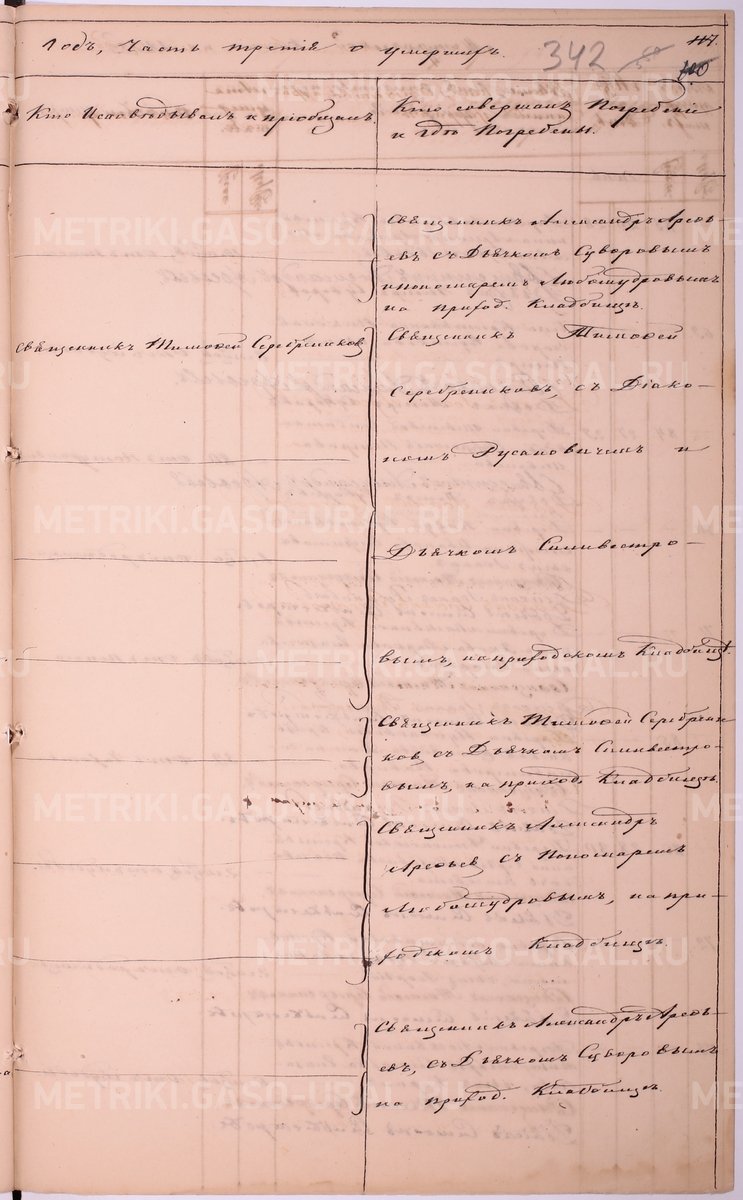 Годъ, Часть третія о умершихъ.
342
117.
Кто Исповѣдывалъ и пріобщалъ.
Кто совершалъ Погребеніе
и гдѣ Погребены.
Священникъ Александръ Арефь-
евъ съ Дьячкомъ Суворовымъ
и пономаремъ Любомудровымъ
на приход. Кладбищѣ.
Священникъ Тимофей Серебренниковъ
Священникъ Тимофей
Серебрениковъ, съ Діако-
номъ Русановичемъ и
Дьячкомъ Силивестро-
вымъ, на приходскомъ Кладбищѣ.
Священникъ Тимофей Серебрени-
ковъ, съ Дьячкомъ Силивестро-
вымъ, на приход. Кладбищѣ.
Священникъ Александръ
Арефьевъ, съ Пономаремъ
Любомудровымъ, на при-
ходскомъ Кладбищѣ.
Священникъ Александръ Арефь-
евъ, съ Дьячкомъ Суворовымъ
на приход. Кладбищѣ.
METRIKI.GASO-URAL.RU